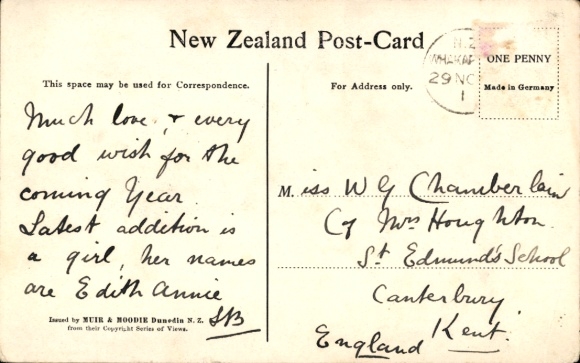 New Zealand Post-Card
This space may be used for Correspondence.
For Address only.
ONE PENNY
Made in Germany
N.Z.
29 NO
1
Much love & every
good wish for the
coming Year.
Latest addition is
a girl, her names
are Edith Annie
SB
Issued by MUIR & MOODIE Dunedin N. Z.
from their Copyright Series of Views.
Miss W G Chamberlain
C/ Mrs Houghton.
St Edmund's School
Canterbury
Kent.
England